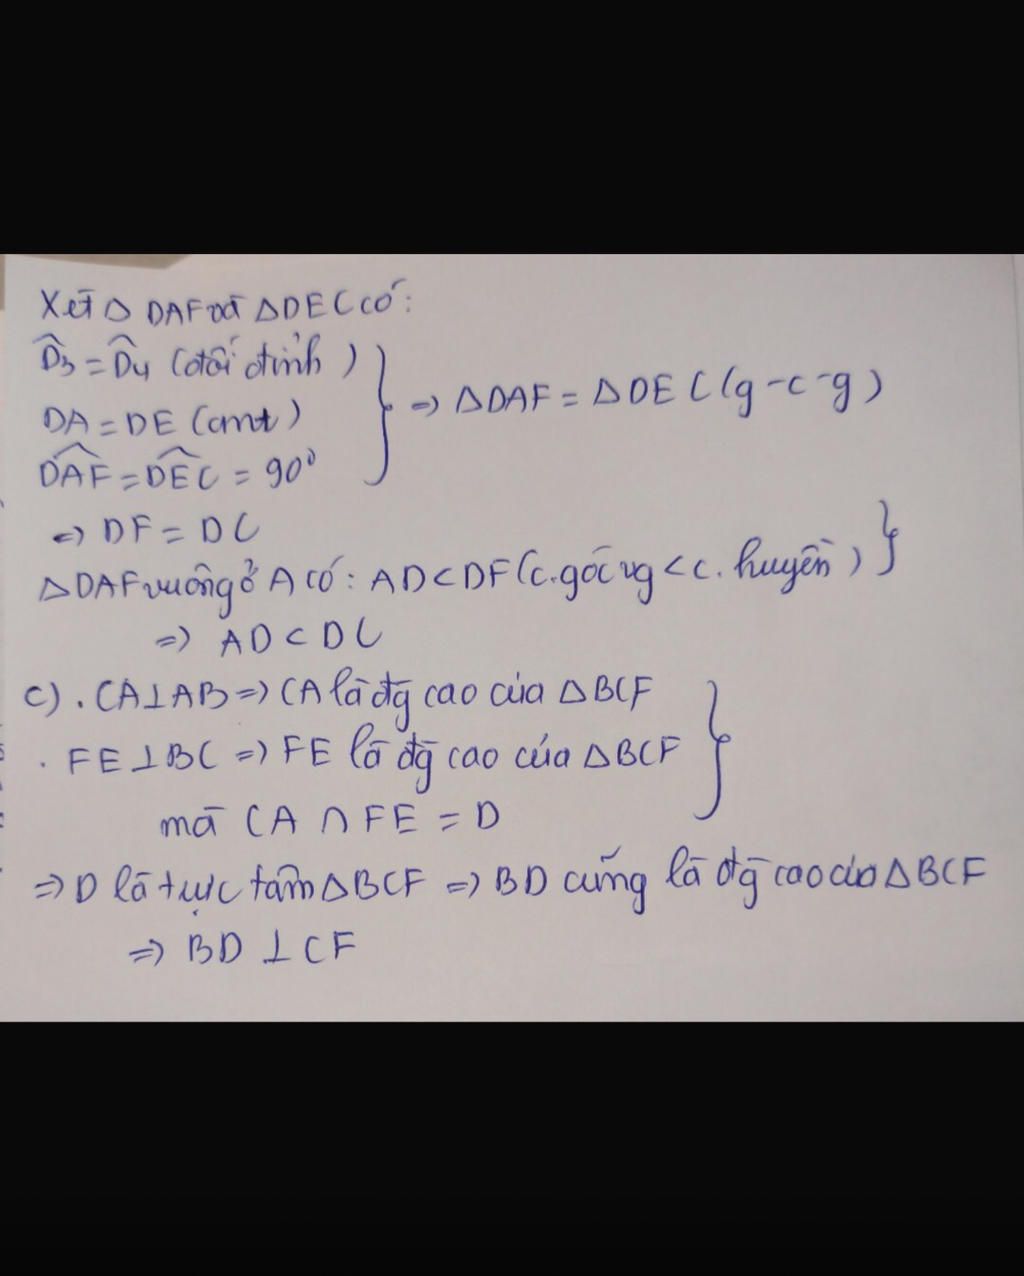 Xét △ DAF và △DEC có:
D̂₃ = D̂₄ (đối đỉnh)
DA = DE (cmt) } => △DAF = △DEC (g-c-g)
DAF̂ = DEĈ = 90⁰
=> DF = DC
△DAF vuông ở A có: AD < DF (c.góc vg < c. huyền) }
=> AD < DC
c) . CA⊥AB => CA là đg cao của △BCF
. FE⊥BC => FE là đg cao của △BCF }
mà CA ∩ FE = D
=> D là trực tâm △BCF => BD cũng là đg cao của △BCF
=> BD ⊥ CF